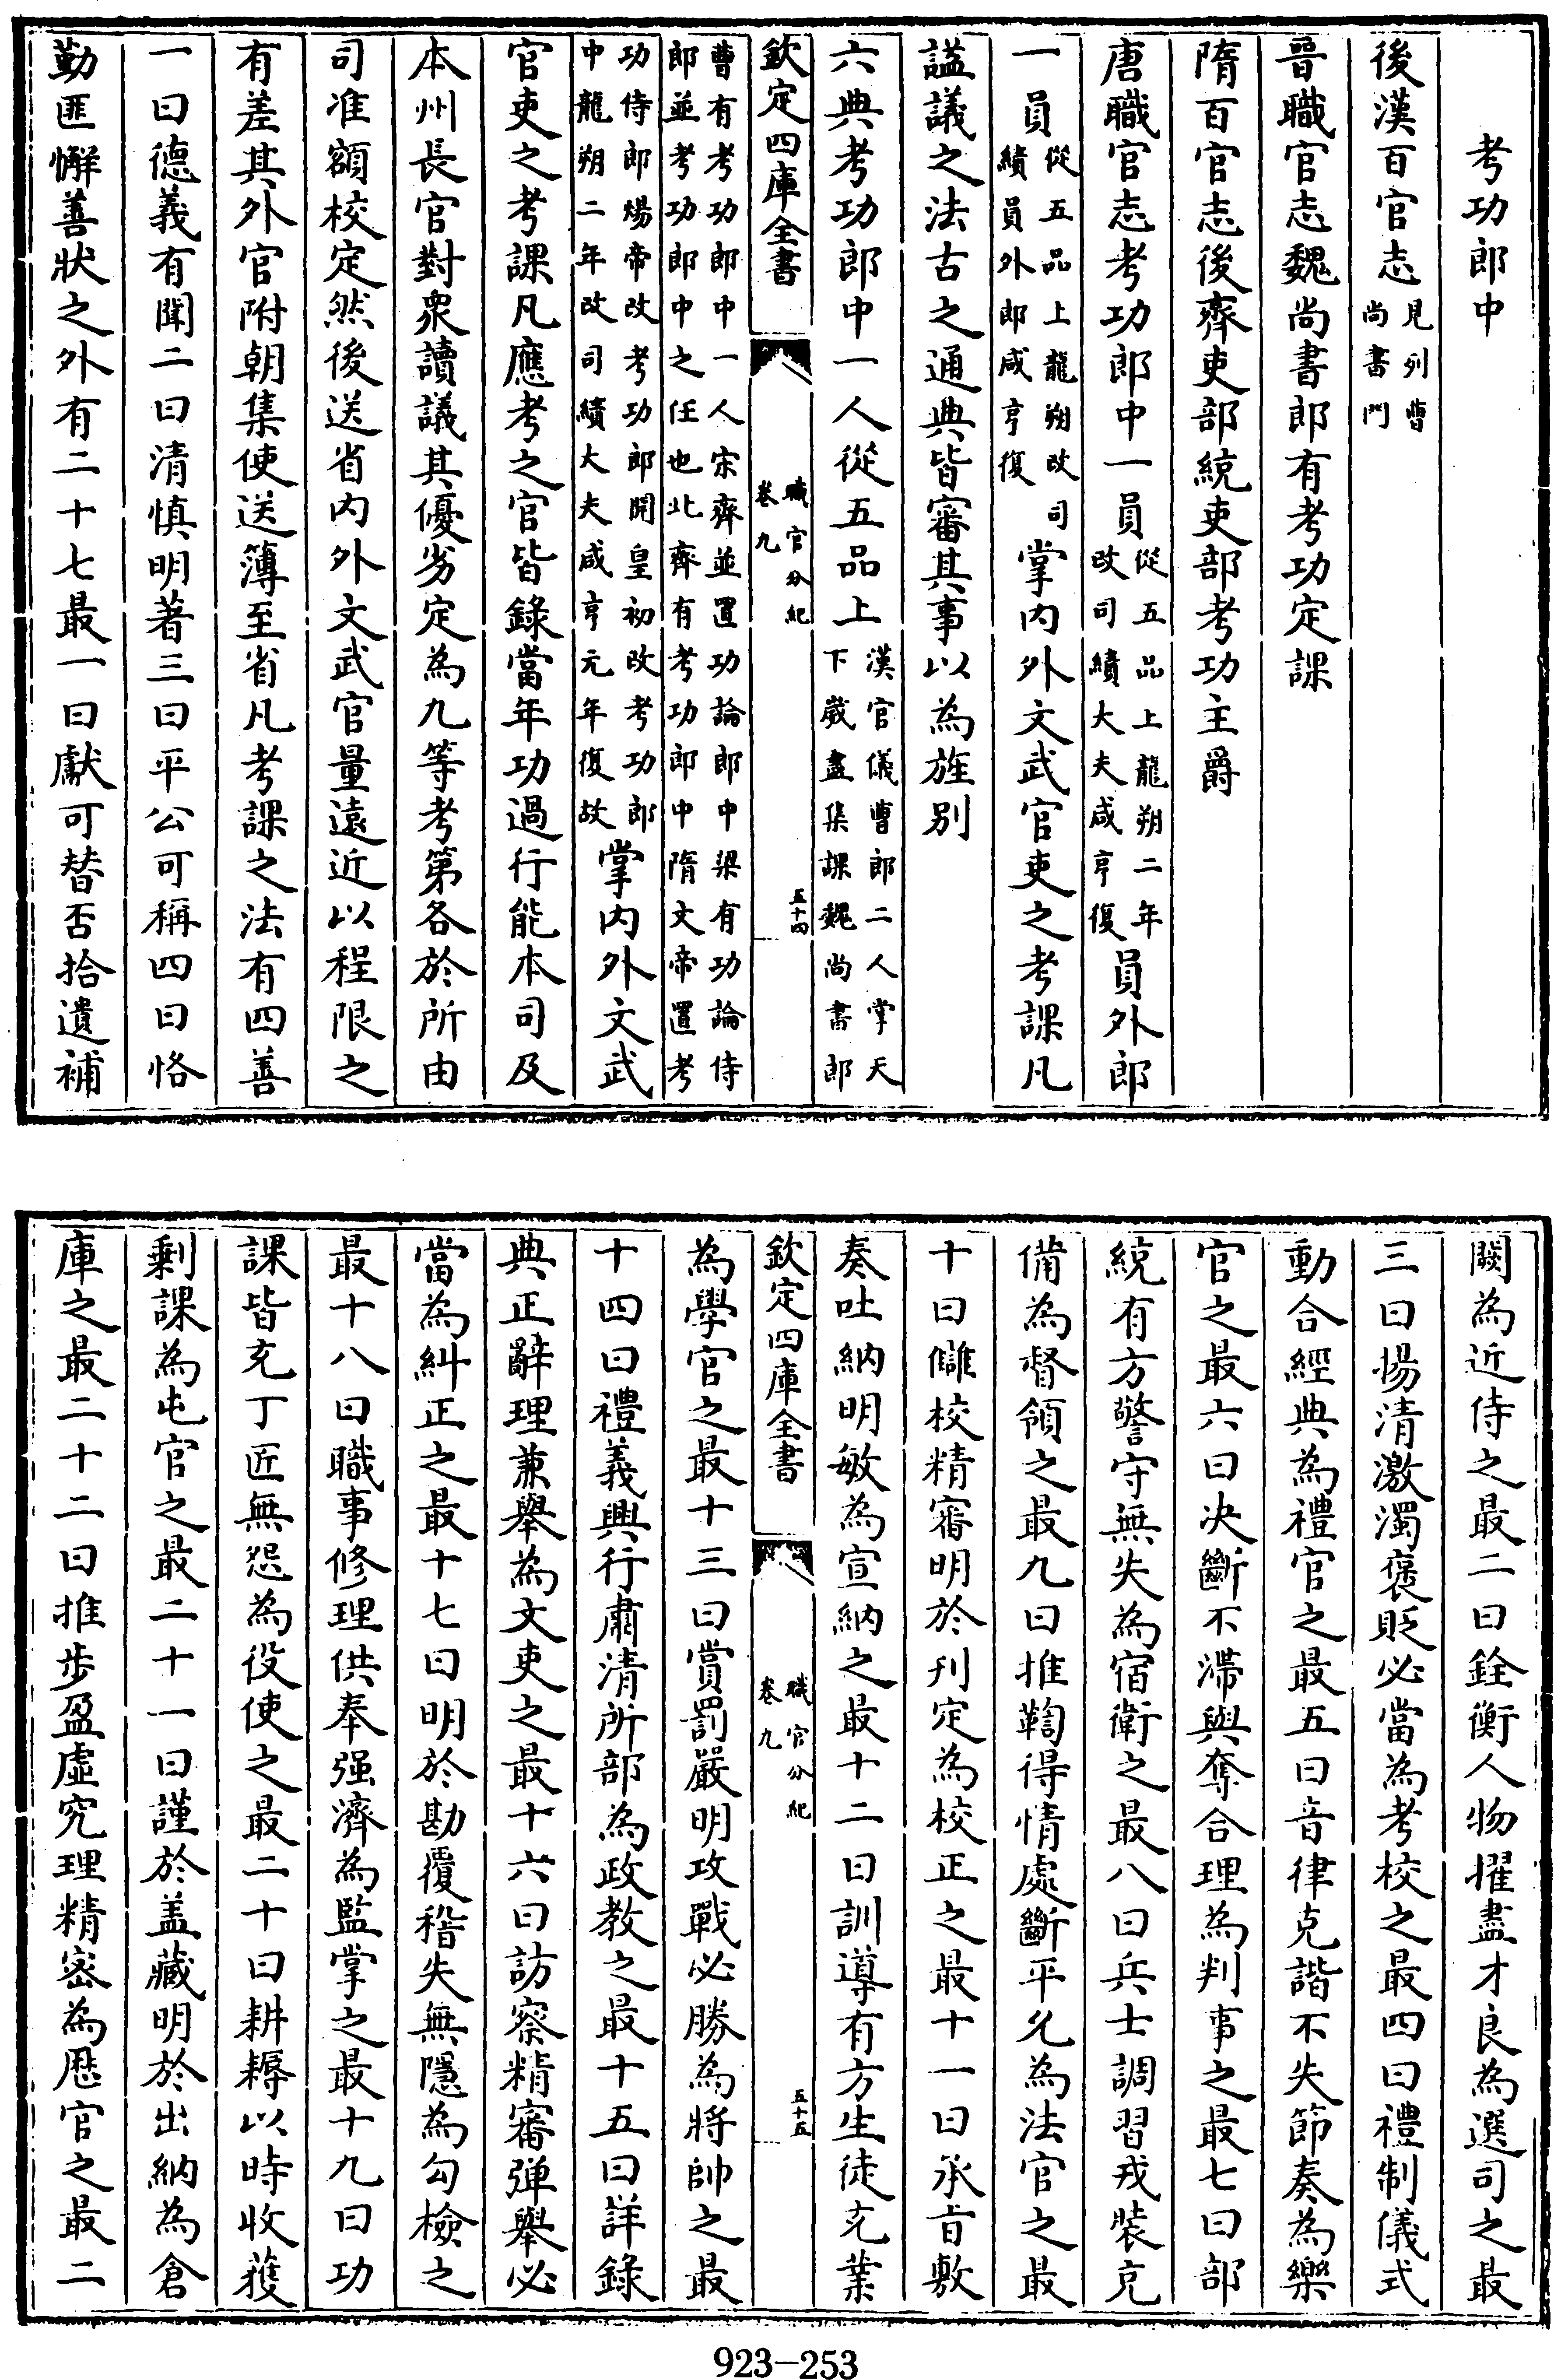 考功郎中
後漢百官志見列曹尚書門
晉職官志魏尚書郎有考功定課
隋百官志後齊吏部統吏部考功主爵
唐職官志考功郎中一員從五品上龍朔二年改司績大夫咸亨復員外郎
一員從五品上龍朔改司績員外郎咸亨復掌內外文武官吏之考課凡
謚議之法古之通典皆審其事以為旌別
六典考功郎中一人從五品上漢官儀曹郎二人掌天下歲盡集課魏尚書郎
欽定四庫全書 職官分紀卷九 五十四
曹有考功郎中一人宋齊並置功論郎中梁有功論侍郎並考功郎中之任也北齊有考功郎中隋文帝置考
功侍郎煬帝改考功郎開皇初改考功郎中龍朔二年改司績大夫咸亨元年復故掌內外文武
官吏之考課凡應考之官皆錄當年功過行能本司及
本州長官對衆讀議其優劣定為九等考第各於所由
司准額校定然後送省內外文武官量遠近以程限之
有差其外官附朝集使送簿至省凡考課之法有四善
一曰德義有聞二曰清慎明著三曰平公可稱四曰恪
勤匪懈善狀之外有二十七最一曰獻可替否拾遺補
闕為近侍之最二曰銓衡人物擢盡才良為選司之最
三曰揚清激濁褒貶必當為考校之最四曰禮制儀式
動合經典為禮官之最五曰音律克諧不失節奏為樂
官之最六曰决斷不滯與奪合理為判事之最七曰部
統有方警守無失為宿衛之最八曰兵士調習戎裝充
備為督領之最九曰推鞫得情處斷平允為法官之最
十曰讎校精審明於刋定為校正之最十一曰承㫖敷
奏吐納明敏為宣納之最十二曰訓導有方生徒充業
欽定四庫全書 職官分紀卷九 五十五
為學官之最十三曰賞罰嚴明攻戰必勝為將帥之最
十四曰禮義興行肅清所部為政教之最十五曰詳錄
典正辭理兼舉為文吏之最十六曰訪察精審彈舉必
當為糾正之最十七曰明於勘覆稽失無隱為勾檢之
最十八曰職事修理供奉强濟為監掌之最十九曰功
課皆充丁匠無怨為役使之最二十曰耕耨以時收穫
剩課為屯官之最二十一曰謹於盖藏明於出納為倉
庫之最二十二曰推步盈虛究理精密為厯官之最二
923-253